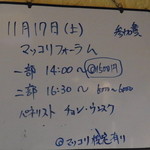 11月17日(土)
マッコリフォーラム
一部 14:00〜 @1500円
二部 16:30〜
パネリスト チョン・ウンスク
@マッコリ 有り